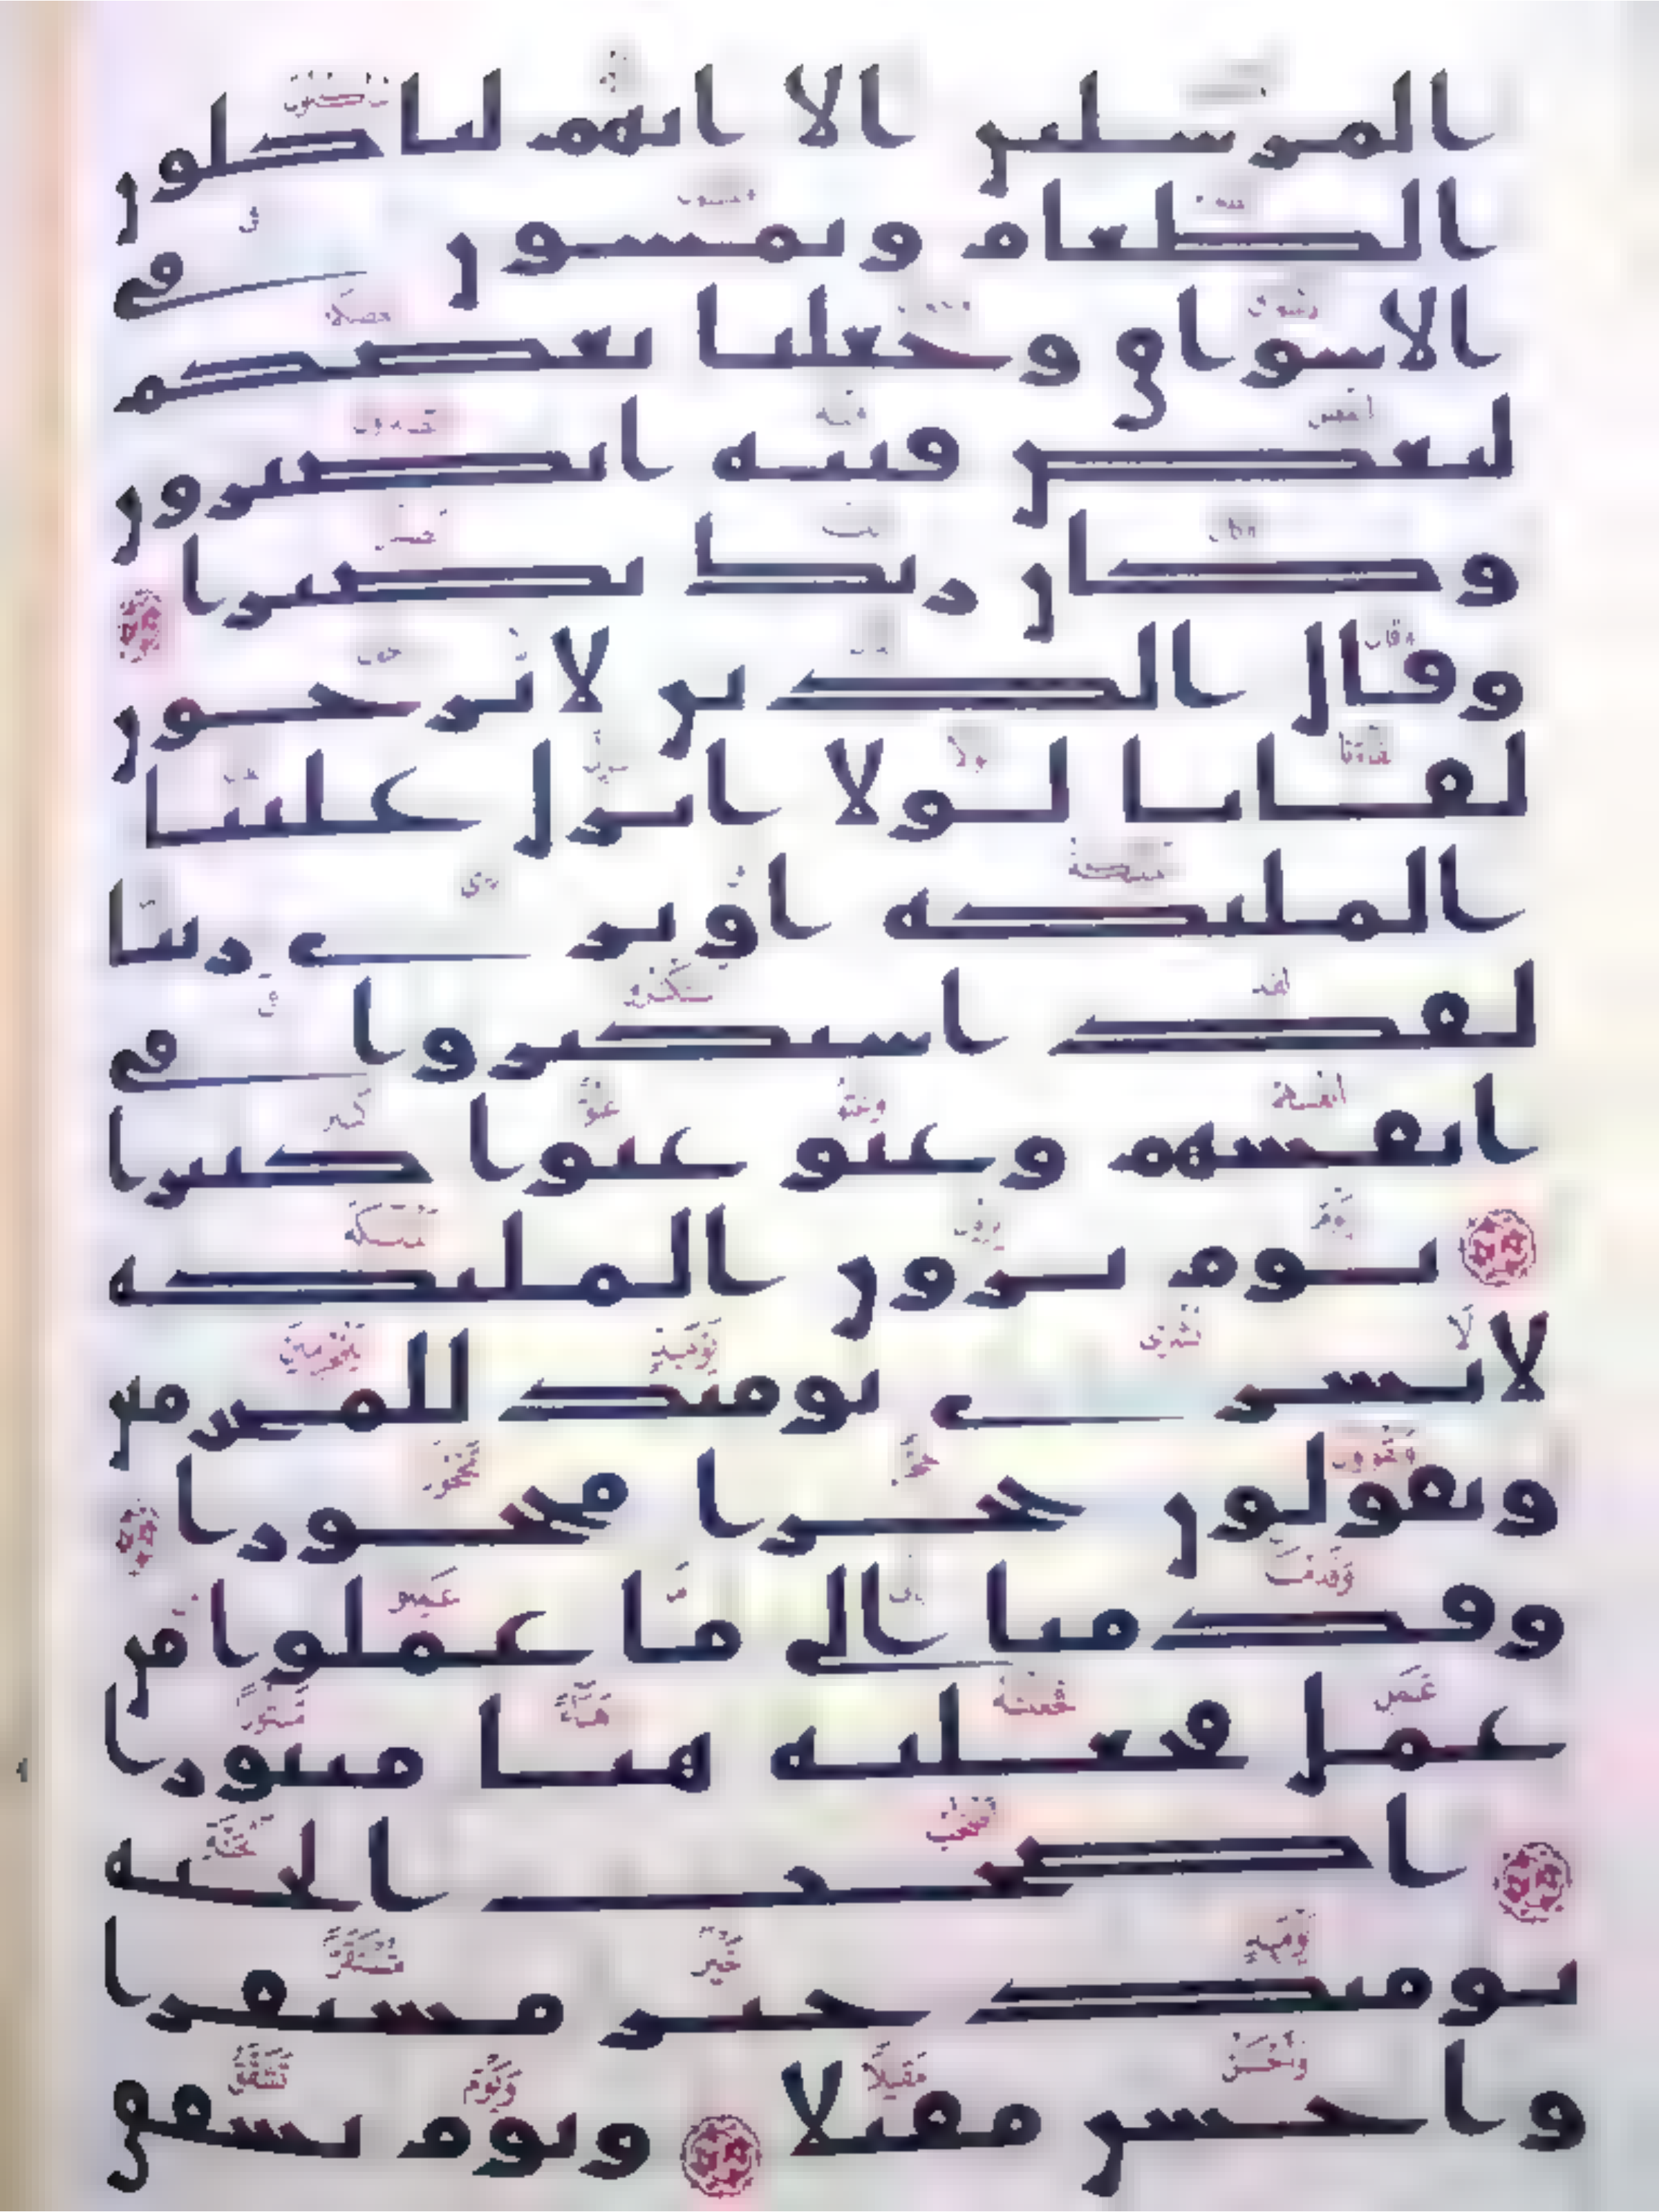 المرسلين الا انهم لياكلون
الطعام ويمشون في
الاسواق وجعلنا بعضكم
لبعض فتنه اتصبرون
وكان ربك بصيرا
وقال الذين لا يرجون
لقانا لولا انزل علينا
المليكه او نرى ربنا
لقد استكبروا في
انفسهم وعتو عتوا كبيرا
يوم يرون المليكه
لا بشرى يوميذ للمجرمين
ويقولون حجرا محجورا
وقدمنا الى ما عملوا من
عمل فجعلنه هبا منثورا
اصحب الجنه
يوميذ خير مستقرا
واحسن مقيلا ويوم تشقق